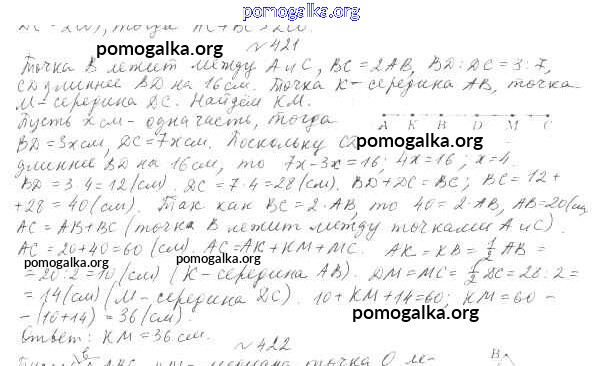 pomogalka.org
тогда
№421
pomogalka.org
Точка В лежит между А и С, ВС = 2АВ, BD : DC = 3 : 7,
CD длиннее BD на 16 см. Точка К - середина АВ, точка
М - середина DC. Найдем КМ.
Пусть x см - одна часть, тогда
A K B D M C
BD = 3x см, DC = 7x см. Поскольку CD
pomogalka.org
длиннее BD на 16 см, то 7x - 3x = 16; 4x = 16; x = 4.
BD = 3·4 = 12 (см). DC = 7·4 = 28 (см). BD + DC = BC; BC = 12 +
+ 28 = 40 (см). Так как BC = 2·AB, то 40 = 2·AB, AB = 20 (см)
AC = AB + BC (точка В лежит между точками А и С).
AC = 20 + 40 = 60 (см). AC = AK + KM + MC. AK = KB = 1/2 AB =
pomogalka.org
pomogalka.org
= 20 : 2 = 10 (см) (К - середина АВ). DM = MC = 1/2 DC = 28 : 2 =
= 14 (см) (М - середина DC). 10 + KM + 14 = 60; KM = 60 -
- (10 + 14) = 36 (см).
pomogalka.org
Ответ: KM = 36 см.
№422
B
точка О ле-
pomogalka.org